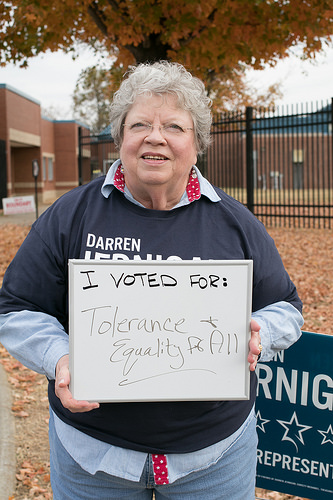 DARREN
I VOTED FOR:
Tolerance &
Equality for All
RNIG
REPRESENT